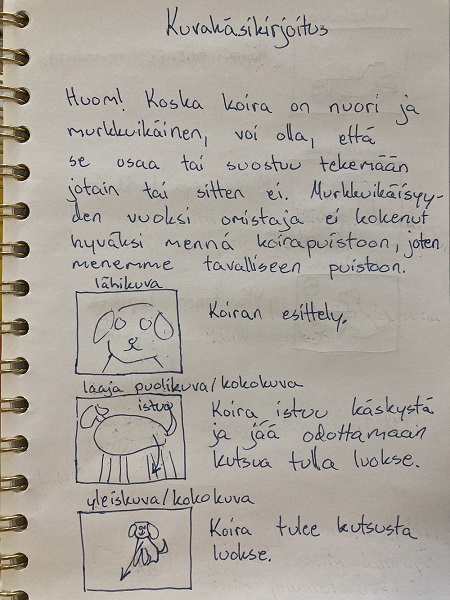 Kuvakäsikirjoitus
Huom! Koska koira on nuori ja
murkkuikäinen, voi olla, että
se osaa tai suostuu tekemään
jotain tai sitten ei. Murkkuikäisyy-
den vuoksi omistaja ei kokenut
hyväksi mennä koirapuistoon, joten
menemme tavalliseen puistoon.
lähikuva
Koiran esittely.
laaja puolikuva/kokokuva
istuu
Koira istuu käskystä
ja jää odottamaan
kutsua tulla luokse.
yleiskuva/kokokuva
Koira tulee kutsusta
luokse.